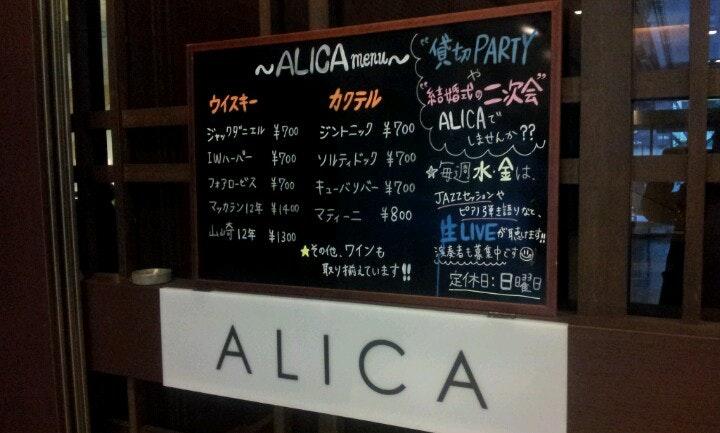 ～ALICA menu～
ウイスキー
ジャックダニエル ¥700
I.W.ハーパー ¥700
フォアローゼス ¥700
マッカラン12年 ¥1400
山崎12年 ¥1300
カクテル
ジントニック ¥700
ソルティドック ¥700
キューバリバー ¥700
マティーニ ¥800
★その他、ワインも
取り揃えています!!
"貸切PARTY
や
"結婚式の二次会"
ALICAで
しませんか??
☆毎週水・金は、
JAZZセッションや
ピアノ弾き語りなど、
生LIVEが聴けます!!
演奏者も募集中です
定休日:日曜日
ALICA